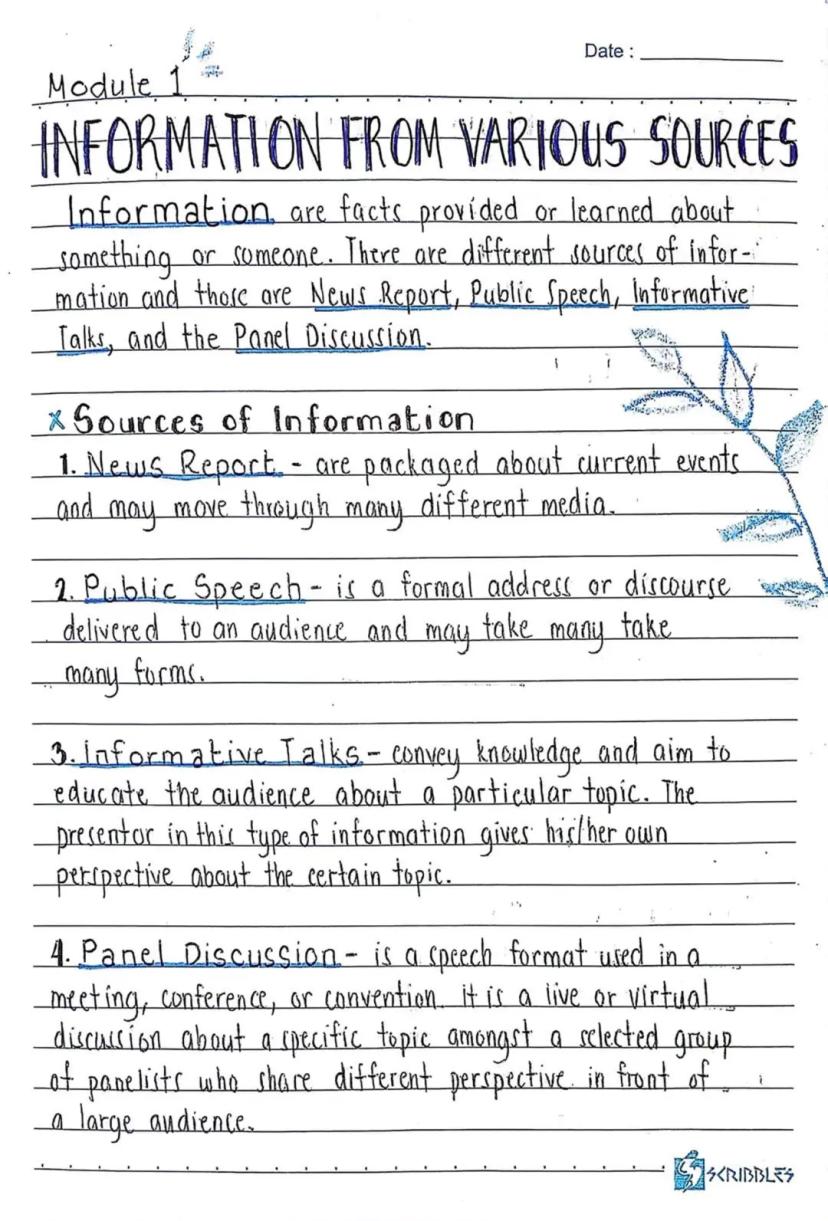 Date :
Module 1
INFORMATION FROM VARIOUS SOURCES
Information are facts provided or learned about
something or someone. There are different sources of infor-
mation and those are News Report, Public Speech, Informative
Talks, and the Panel Discussion.
x Sources of Information
1. News Report - are packaged about current events
and may move through many different media.
2. Public Speech - is a formal address or discourse
delivered to an audience and may take many take
many forms.
3. Informative Talks - convey knowledge and aim to
educate the audience about a particular topic. The
presentor in this type of information gives his/her own
perspective about the certain topic.
4. Panel Discussion - is a speech format used in a
meeting, conference, or convention. it is a live or virtual
discussion about a specific topic amongst a selected group
of panelists who share different perspective in front of
a large audience.
SCRIBBLES